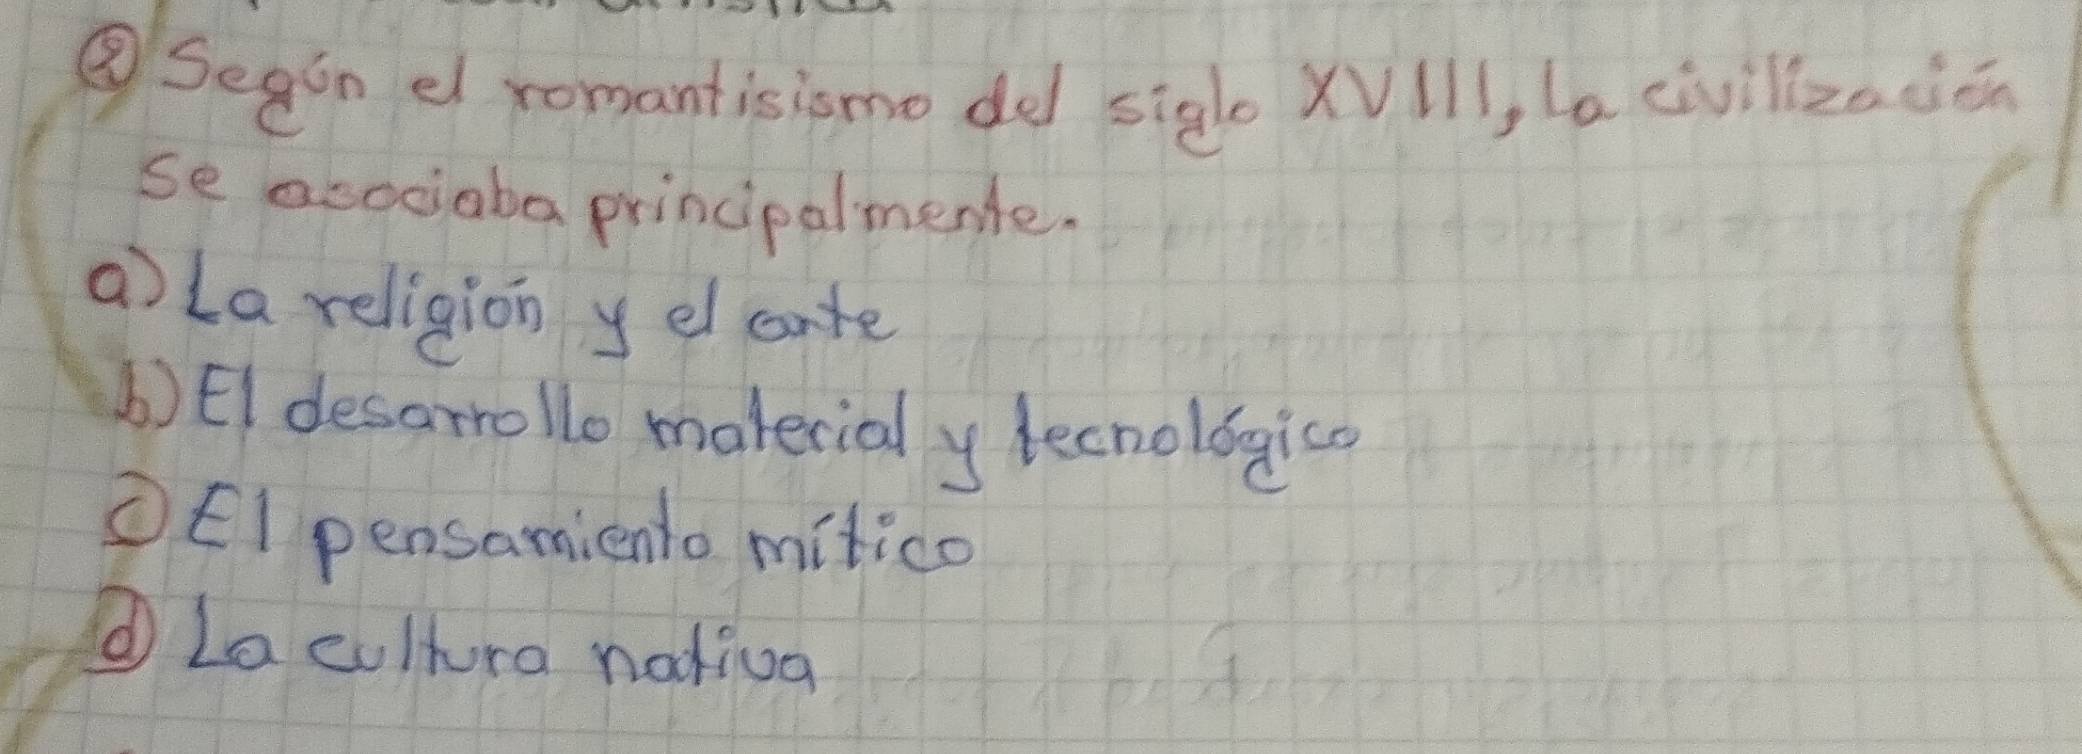 ② Según el romantisismo del siglo XVIII, La civilización
se asociaba principalmente.
a) La religión y el arte
b) El desarrollo material y tecnológico
c) El pensamiento mítico
d) La cultura nativa